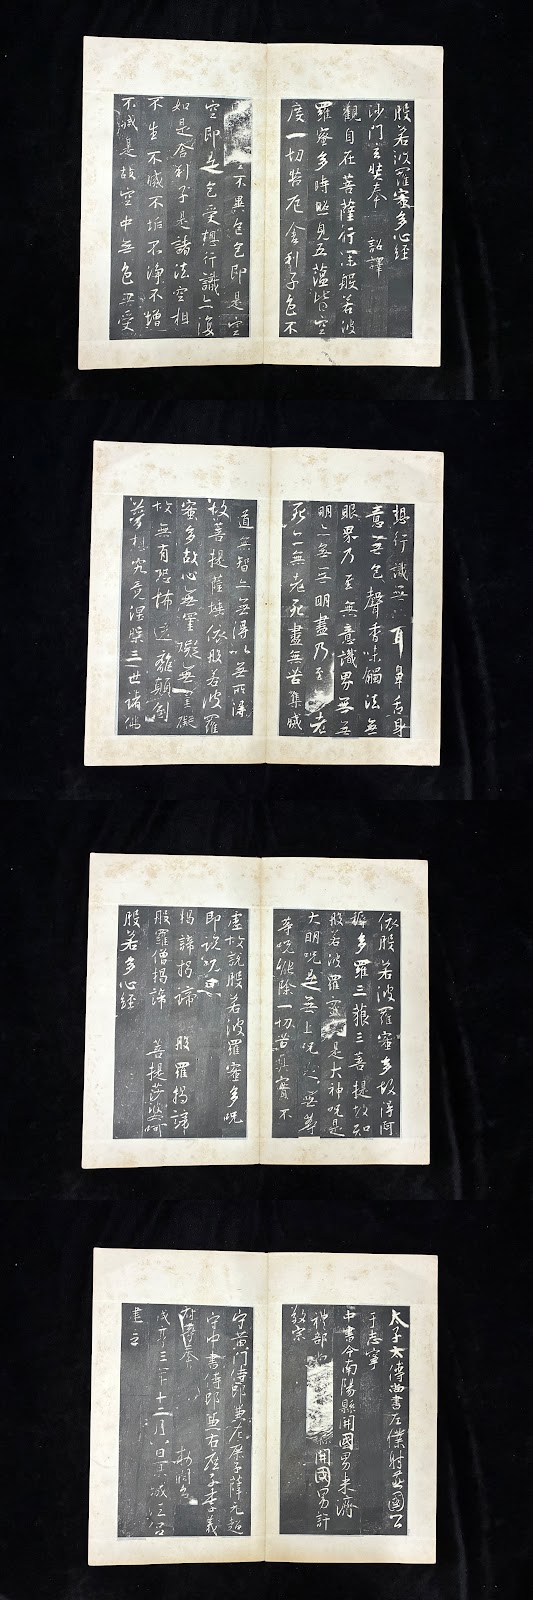 般若波羅蜜多心經
沙門玄奘奉 詔譯
觀自在菩薩行深般若波
羅蜜多時照見五蘊皆空
度一切苦厄舍利子色不
不異色色即是空
空即是色受想行識亦復
如是舍利子是諸法空相
不生不滅不垢不淨不增
不減是故空中無色無受
想行識無 耳鼻舌身
意無色聲香味觸法無
眼界乃至無意識界無無
明亦無無明盡乃至 老
死亦無老死盡無苦集滅
道無智亦無得以無所得
故菩提薩埵依般若波羅
蜜多故心無罣礙無罣礙
故無有恐怖遠離顛倒
夢想究竟涅槃三世諸佛
依般若波羅蜜多故得阿
耨多羅三藐三菩提故知
般若波羅蜜 是大神咒是
大明咒是無上咒是無等
等咒能除一切苦真實不
虛故說般若波羅蜜多咒
即說咒曰
揭諦揭諦 般羅揭諦
般羅僧揭諦 菩提莎婆呵
般若多心經
太子太傅尚書左僕射燕國公
于志寧
中書令南陽縣開國男來濟
禮部尚 縣開國男許
敬宗
守黃門侍郎兼左庶子薛元超
守中書侍郎兼右庶子李義
府等奉 潤色
咸亨三年十二月八日京城法侶
建立